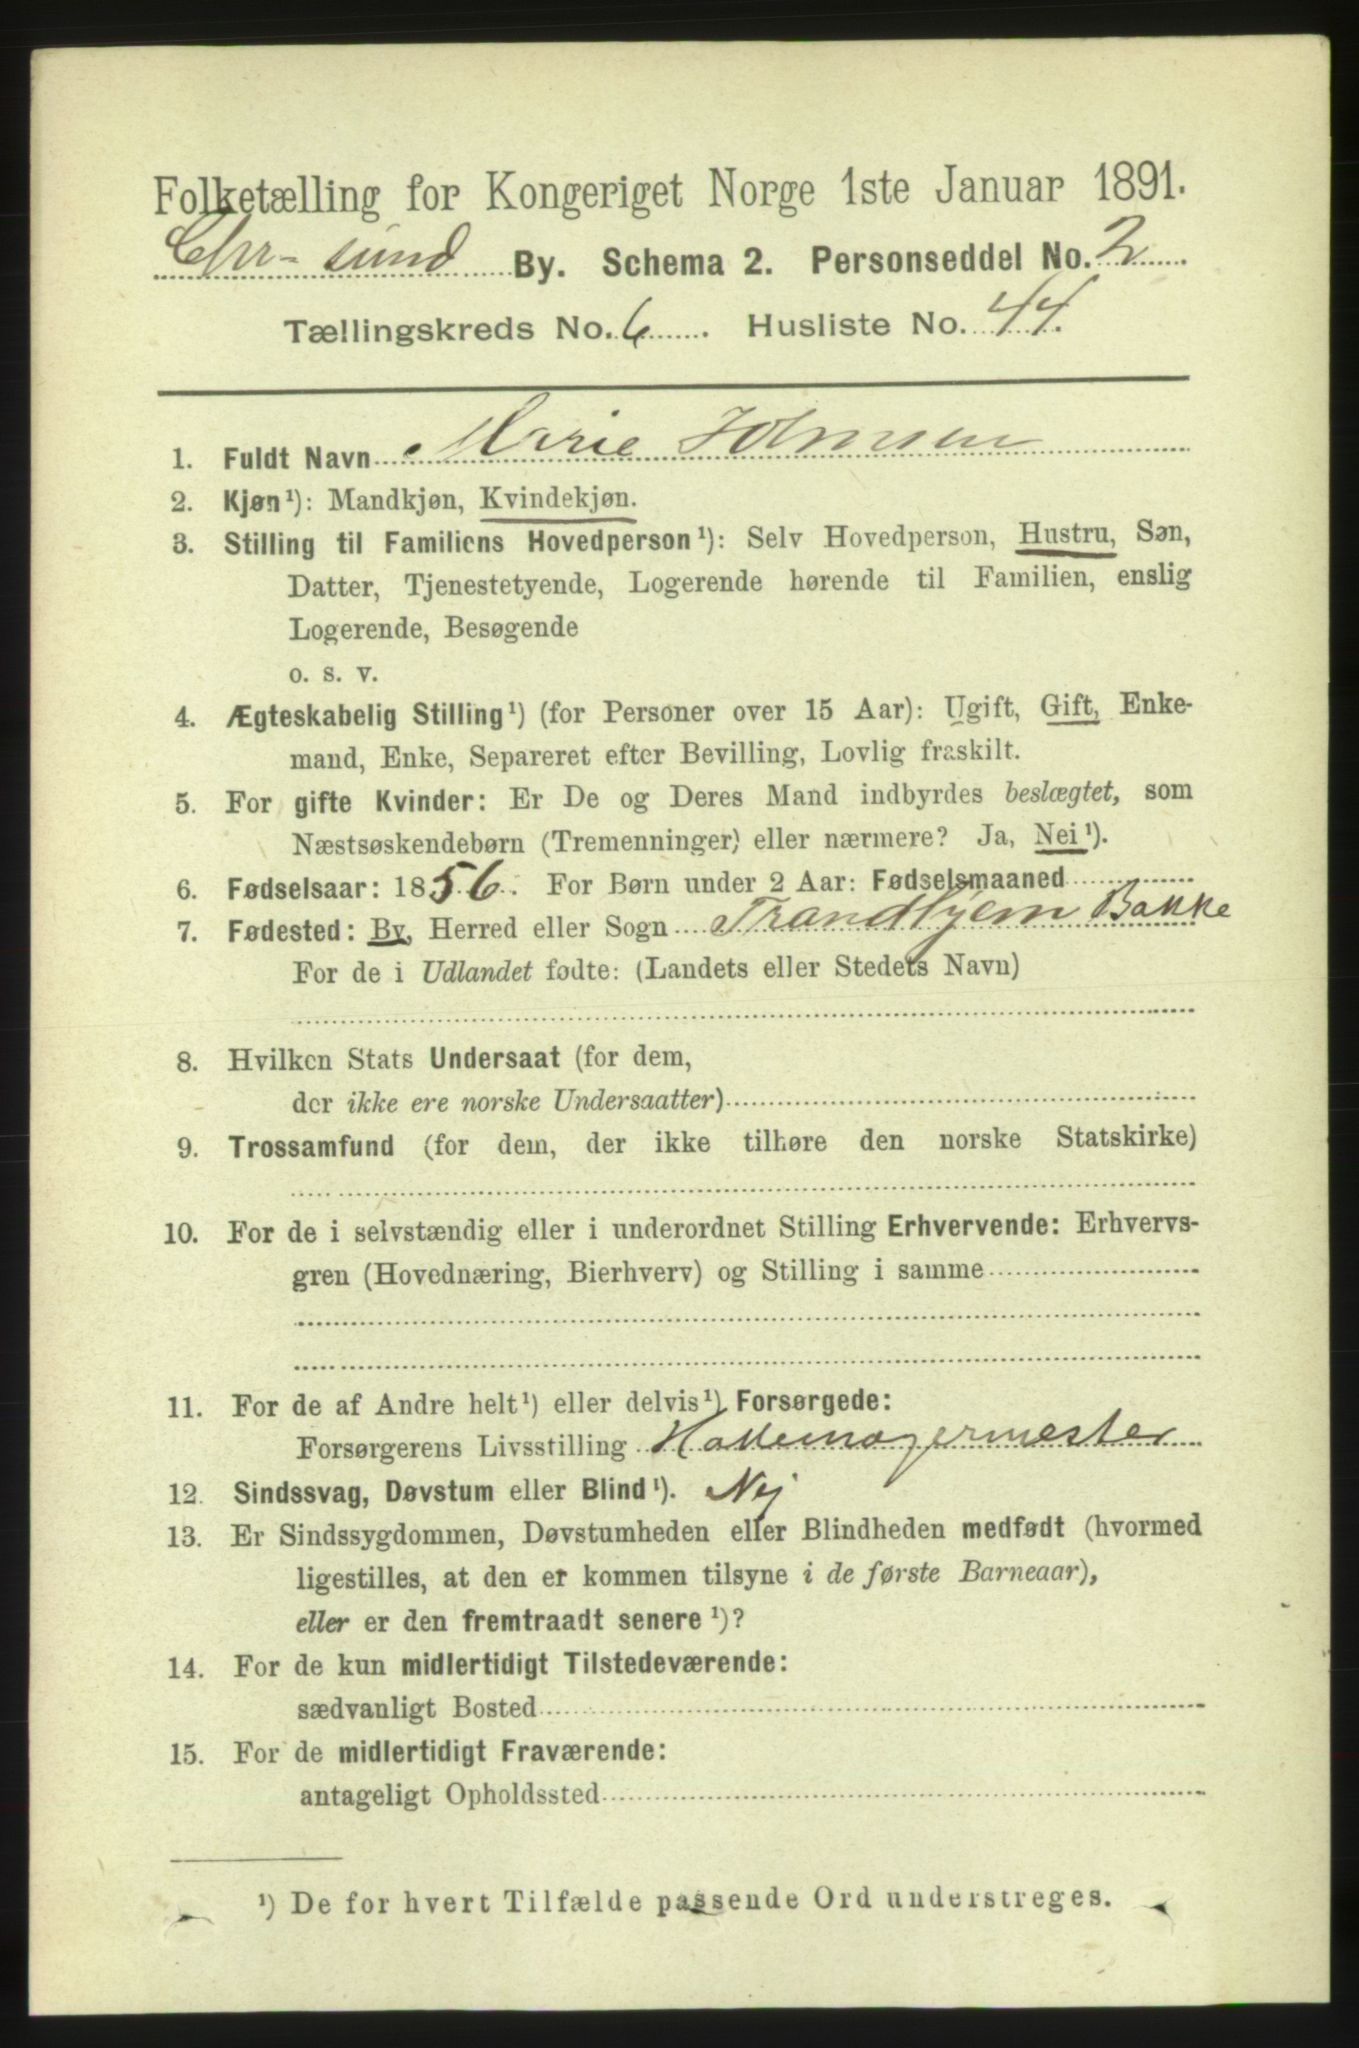 Folketælling for Kongeriget Norge 1ste Januar 1891.
Chr-sund By. Schema 2. Personseddel No. 2
Tællingskreds No. 6. Husliste No. 44.
1. Fuldt Navn Marie Johnsen
2. Kjøn¹): Mandkjøn, Kvindekjøn.
3. Stilling til Familiens Hovedperson¹): Selv Hovedperson, Hustru, Søn,
Datter, Tjenestetyende, Logerende hørende til Familien, enslig
Logerende, Besøgende
o. s. v.
4. Ægteskabelig Stilling¹) (for Personer over 15 Aar): Ugift, Gift, Enke-
mand, Enke, Separeret efter Bevilling, Lovlig fraskilt.
5. For gifte Kvinder: Er De og Deres Mand indbyrdes beslægtet, som
Næstsøskendebørn (Tremenninger) eller nærmere? Ja, Nei¹).
6. Fødselsaar: 1856. For Børn under 2 Aar: Fødselsmaaned
7. Fødested: By, Herred eller Sogn Trandhjem Bakke
For de i Udlandet fødte: (Landets eller Stedets Navn)
8. Hvilken Stats Undersaat (for dem,
der ikke ere norske Undersaatter)
9. Trossamfund (for dem, der ikke tilhøre den norske Statskirke)
10. For de i selvstændig eller i underordnet Stilling Erhvervende: Erhvervs-
gren (Hovednæring, Bierhverv) og Stilling i samme
11. For de af Andre helt¹) eller delvis¹) Forsørgede:
Forsørgerens Livsstilling
12. Sindssvag, Døvstum eller Blind¹). Nej
13. Er Sindssygdommen, Døvstumheden eller Blindheden medfødt (hvormed
ligestilles, at den er kommen tilsyne i de første Barneaar),
eller er den fremtraadt senere¹)?
14. For de kun midlertidigt Tilstedeværende:
sædvanligt Bosted
15. For de midlertidigt Fraværende:
antageligt Opholdssted
¹) De for hvert Tilfælde passende Ord understreges.